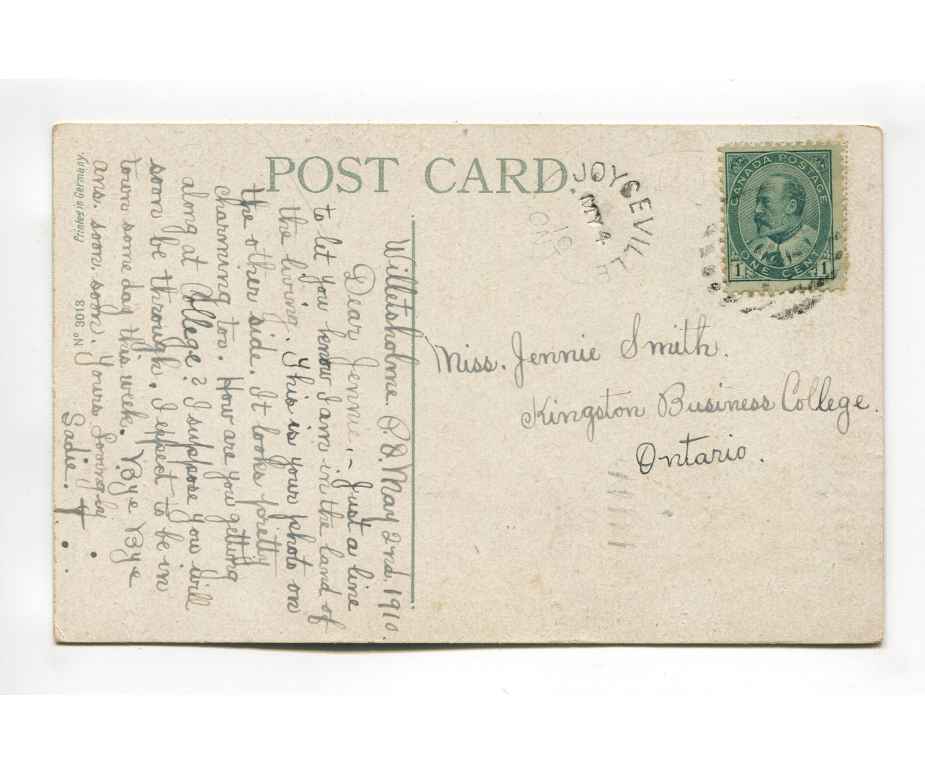 POST CARD.
JOYCEVILLE
MY 4
CANADA POSTAGE
1 ONE CENT 1
Miss. Jennie Smith.
Kingston Business College.
Ontario.
Willetsholme. P.O. May 2nd. 1910.
Dear Jennie,- Just a line
to let you know I am in the land of
the living. This is your photo on
the other side. It looks pretty
charming too. How are you getting
along at College? I suppose you will
soon be through. I expect to be in
town some day this week. Bye Bye
ans. soon. soon. Yours Lovingly
Sadie.
Printed in Germany
No 3013